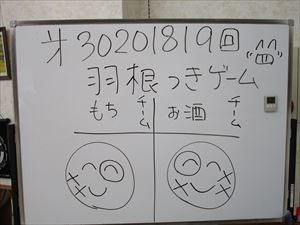 才30201819回
羽根つきゲーム
もちチーム お酒チーム